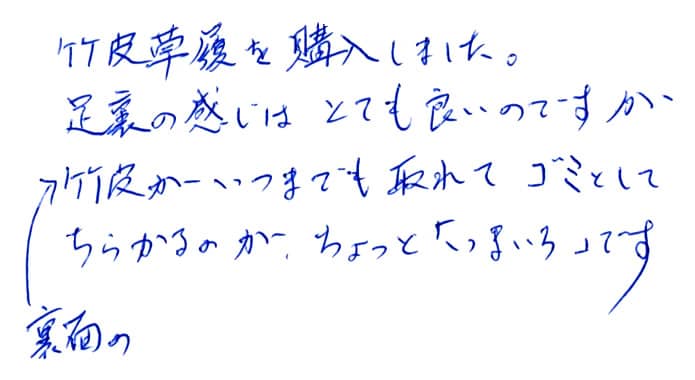 竹皮草履を購入しました。
足裏の感じはとても良いのですが
竹皮がいつまでも取れてゴミとして
ちらかるのが、ちょっと「いまいち」です
裏面の